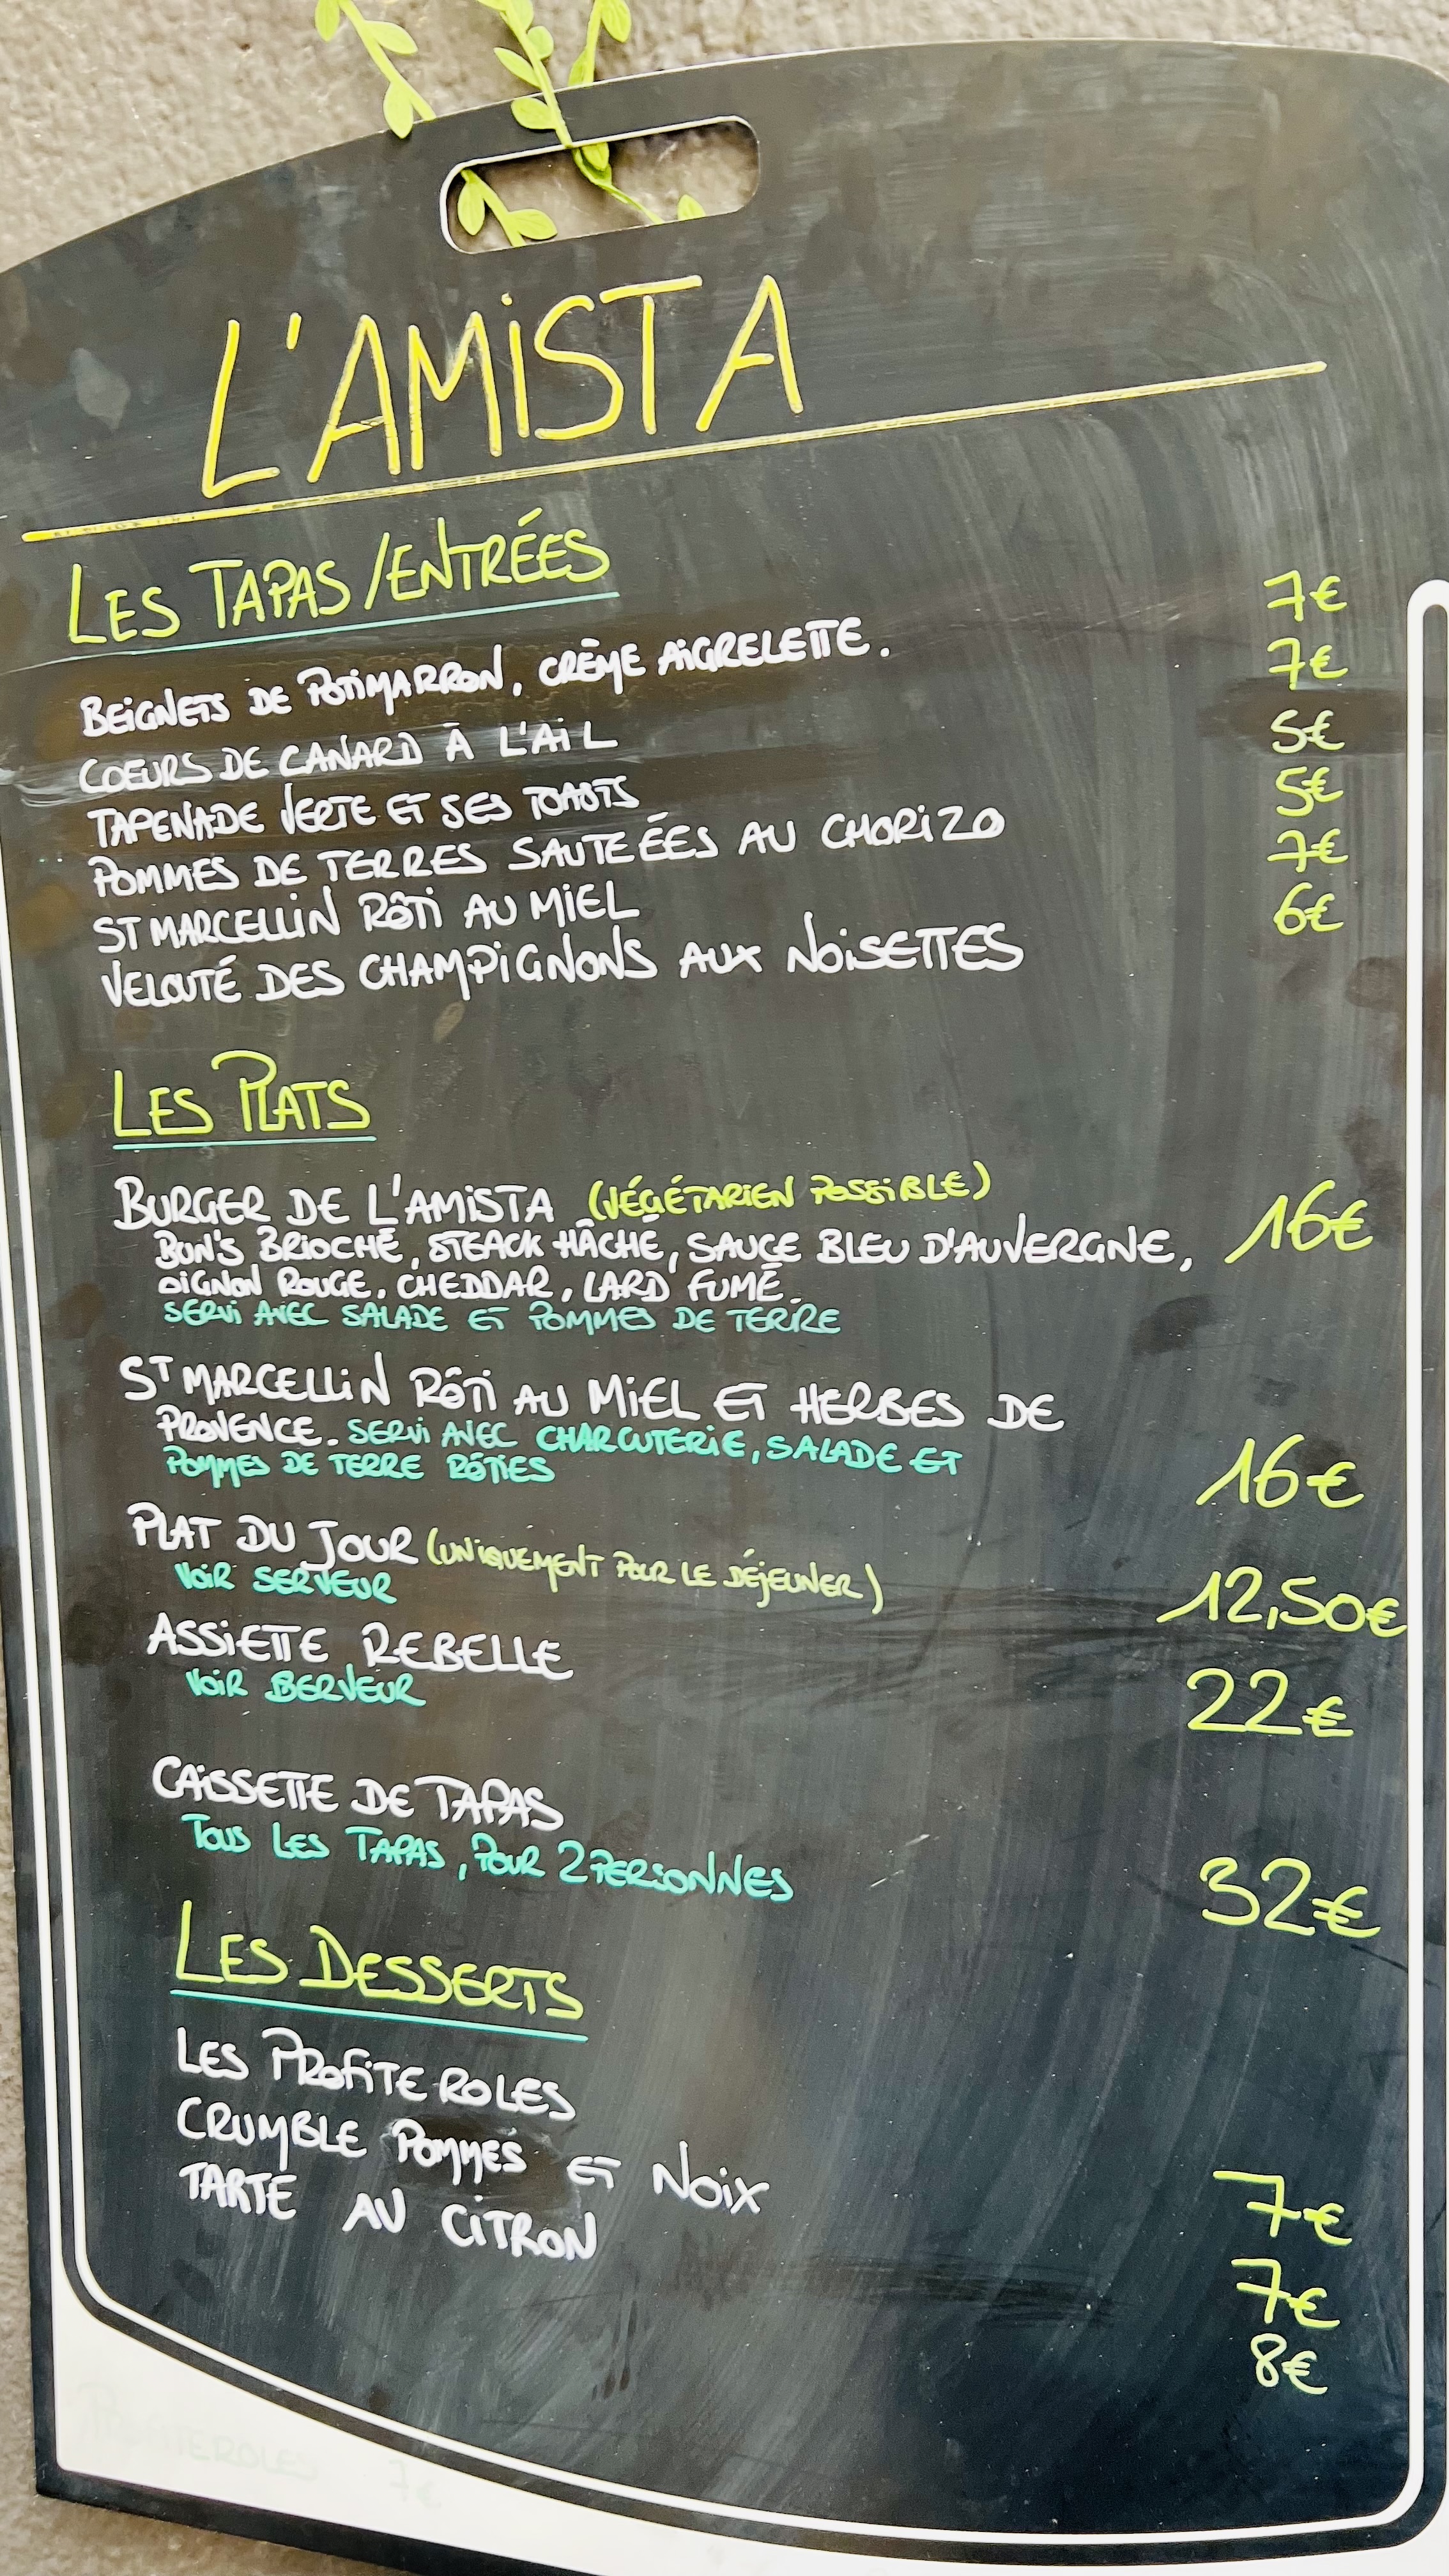 L'AMISTA
LES TAPAS/ENTRÉES
BEIGNETS DE POTIMARRON, CRÈME AIGRELETTE. 7€
COEURS DE CANARD À L'AIL 7€
TAPENADE VERTE ET SES TOASTS 5€
POMMES DE TERRES SAUTEÉES AU CHORIZO 5€
ST MARCELLIN RÔTI AU MIEL 7€
VELOUTÉ DES CHAMPIGNONS AUX NOISETTES 6€
LES PLATS
BURGER DE L'AMISTA (VÉGÉTARIEN POSSIBLE)
BUN'S BRIOCHÉ, STEACK HÂCHÉ, SAUCE BLEU D'AUVERGNE, 16€
OIGNON ROUGE, CHEDDAR, LARD FUMÉ.
SERVI AVEC SALADE ET POMMES DE TERRE
ST MARCELLIN RÔTI AU MIEL ET HERBES DE
PROVENCE. SERVI AVEC CHARCUTERIE, SALADE ET
POMMES DE TERRE RÔTIES 16€
PLAT DU JOUR (UNIQUEMENT POUR LE DÉJEUNER)
VOIR SERVEUR 12,50€
ASSIETTE REBELLE
VOIR SERVEUR 22€
CAISSETTE DE TAPAS
TOUS LES TAPAS, POUR 2 PERSONNES 32€
LES DESSERTS
LES PROFITEROLES 7€
CRUMBLE POMMES ET NOIX 7€
TARTE AU CITRON 8€